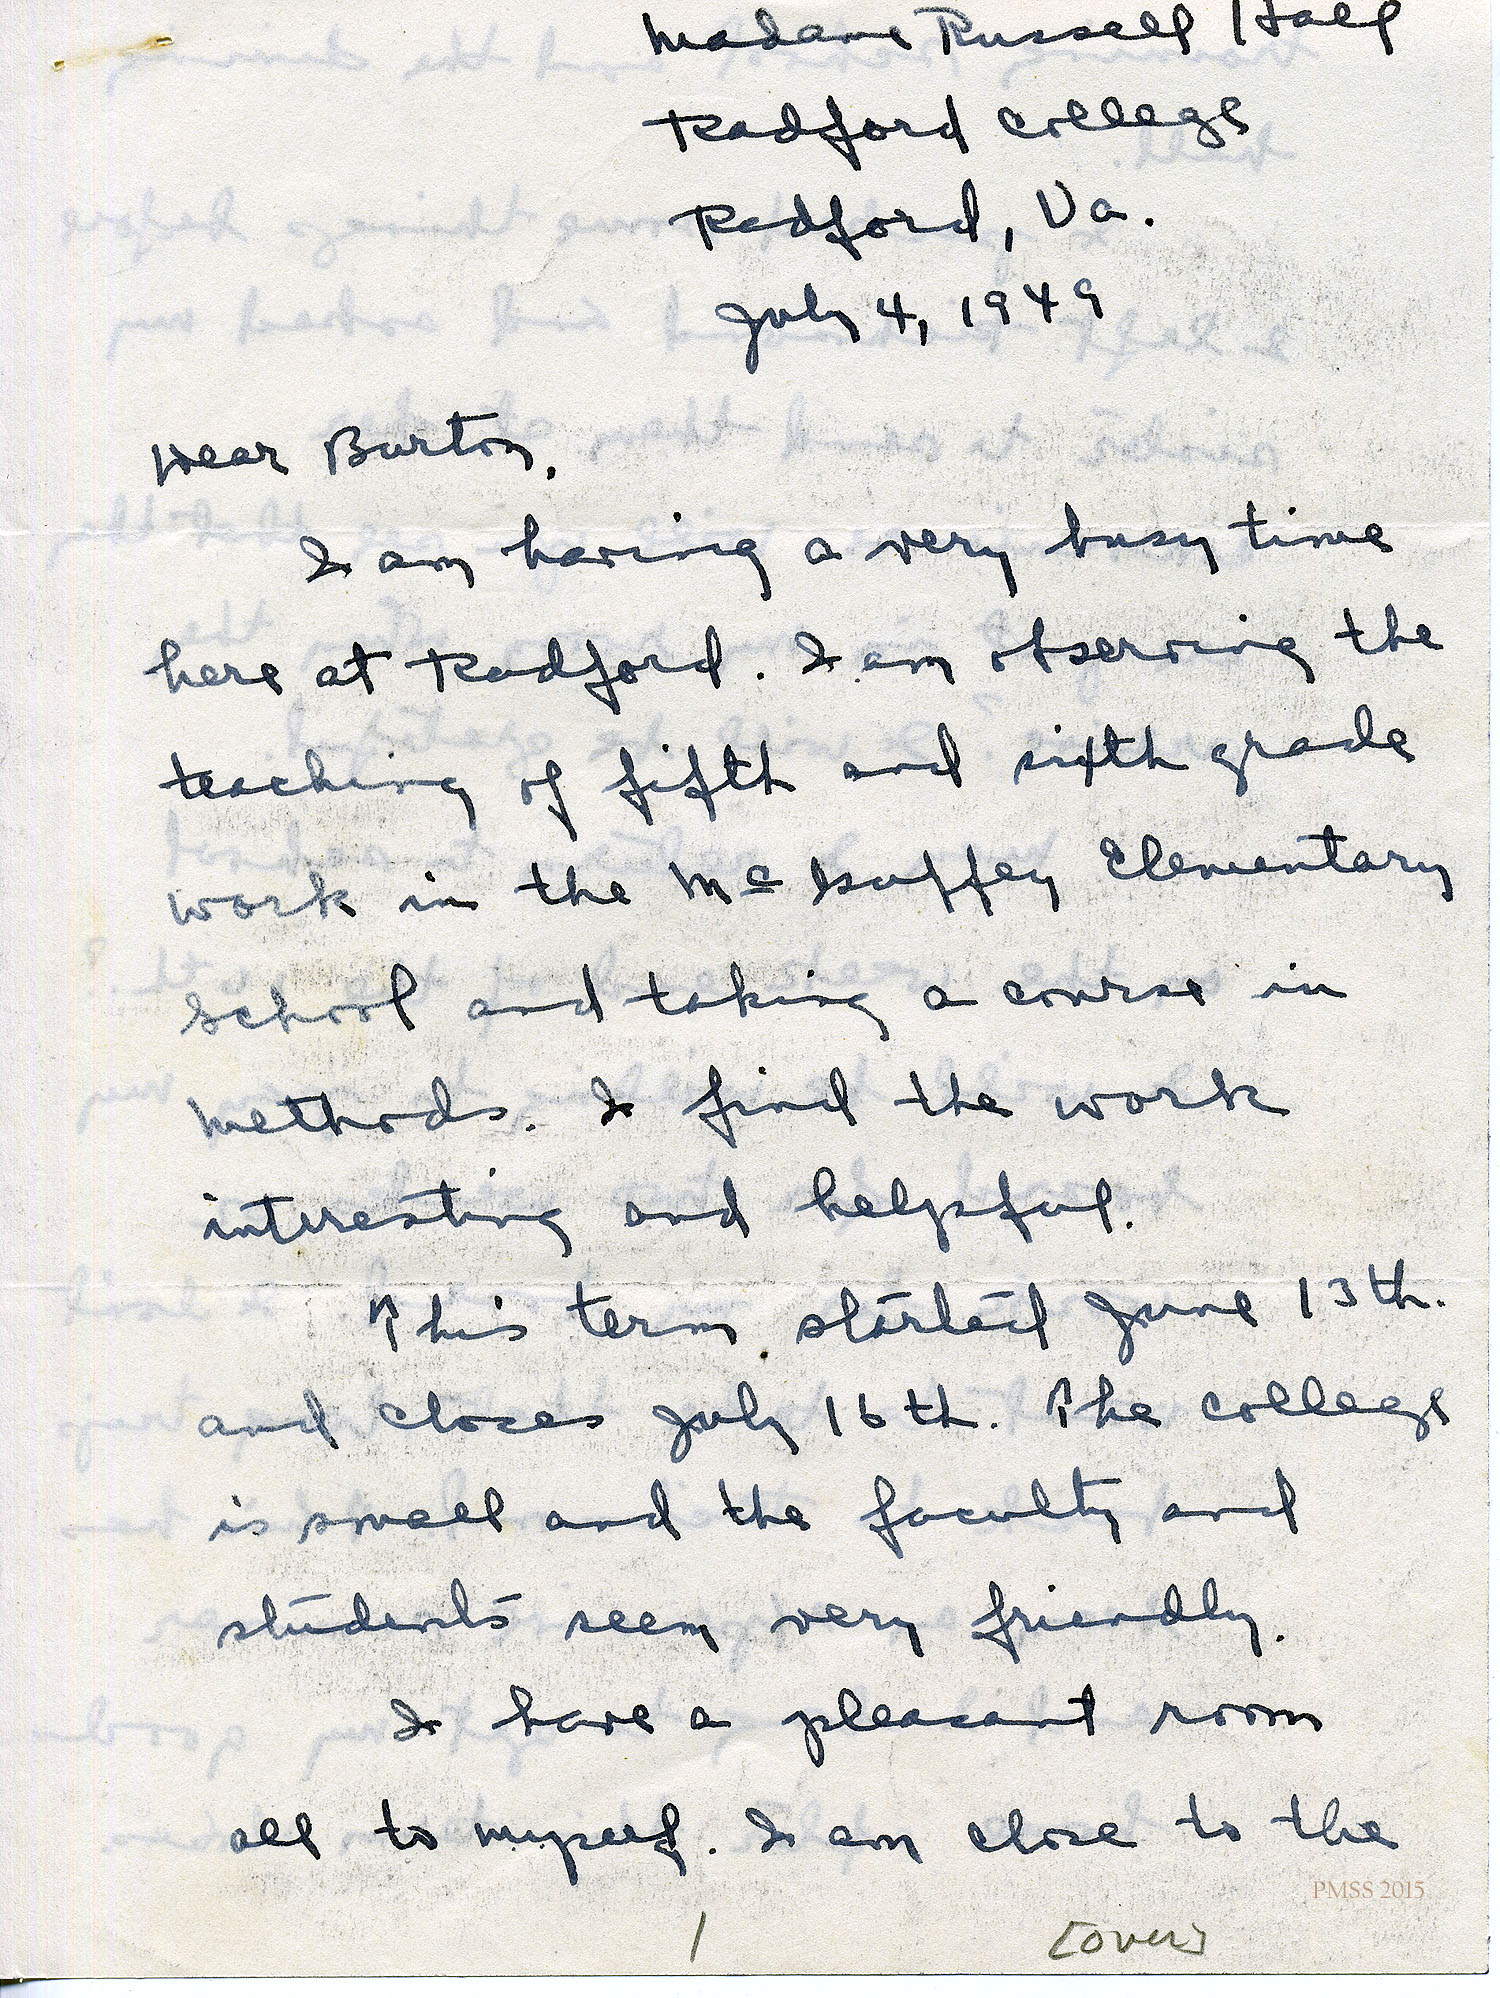 Madame Russell Hall
Radford College
Radford, Va.
July 4, 1949
Dear Burton,
I am having a very busy time
here at Radford. I am observing the
teaching of fifth and sixth grade
work in the McGuffey Elementary
School and taking a course in
methods. I find the work
interesting and helpful.
This term started June 13th.
and closes July 16th. The college
is small and the faculty and
students seem very friendly.
I have a pleasant room
all to myself. I am close to the
PMSS 2015
1 [over]